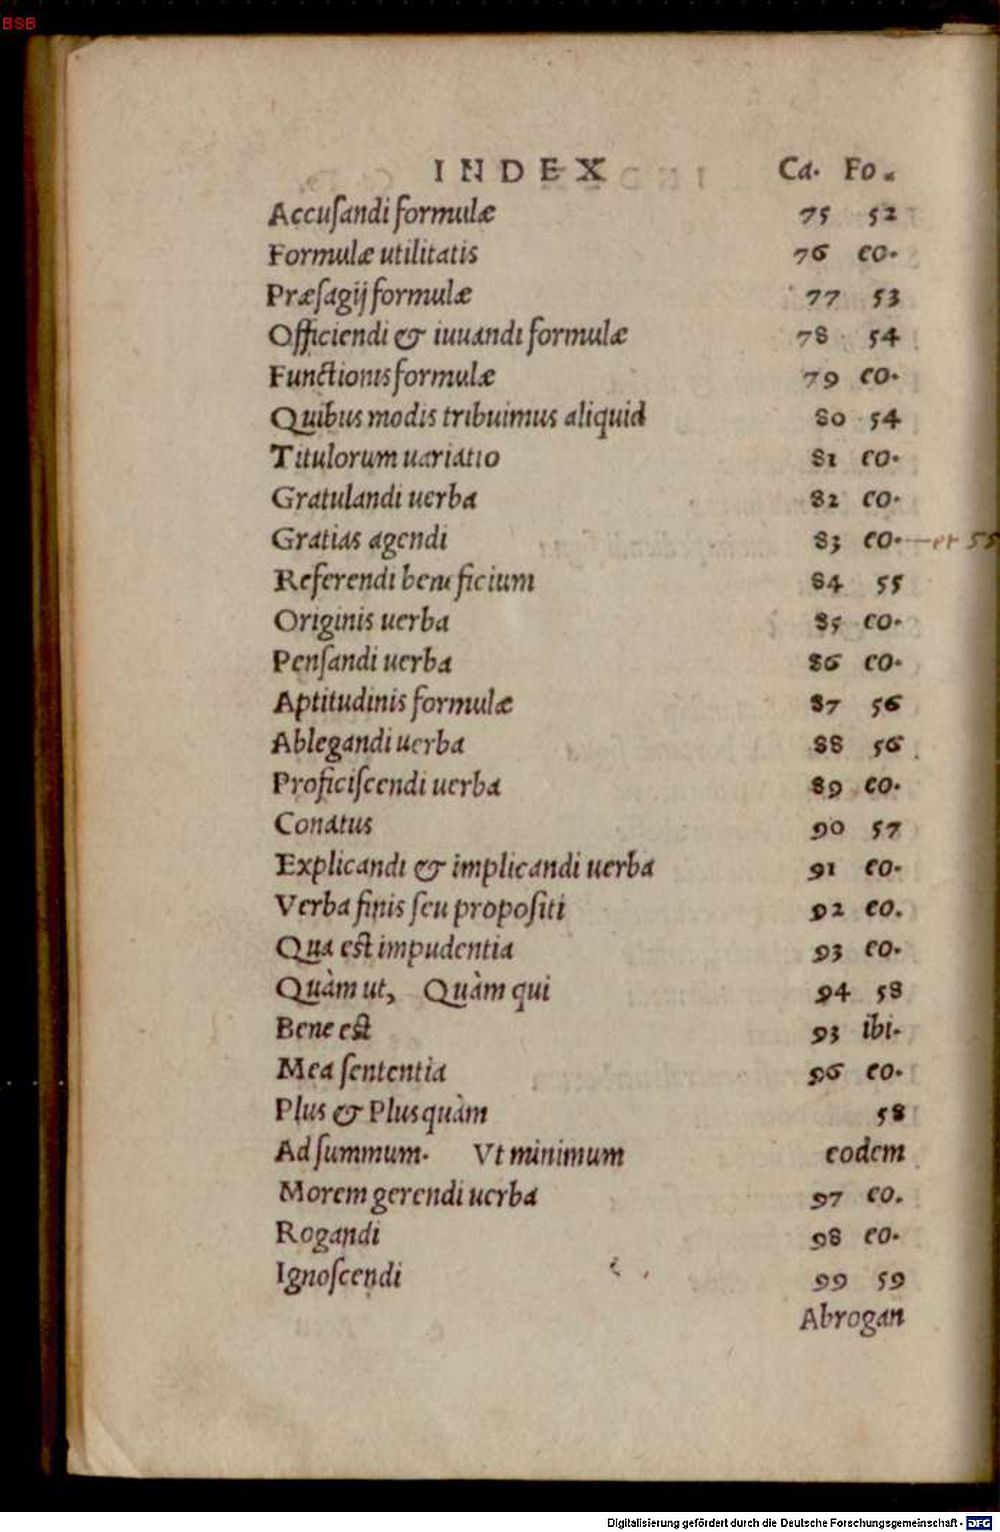 BSB
INDEX Ca. Fo.
Accuſandi formulæ 75 52
Formulæ utilitatis 76 eo.
Præſagij formulæ 77 53
Officiendi & iuuandi formulæ 78 54
Functionis formulæ 79 eo.
Quibus modis tribuimus aliquid 80 54
Titulorum uariatio 81 eo.
Gratulandi uerba 82 eo.
Gratias agendi 83 eo.—et 55
Referendi beneficium 84 55
Originis uerba 85 eo.
Penſandi uerba 86 eo.
Aptitudinis formulæ 87 56
Ablegandi uerba 88 56
Proficiſcendi uerba 89 eo.
Conatus 90 57
Explicandi & implicandi uerba 91 eo.
Verba finis ſeu propoſiti 92 eo.
Qua eſt impudentia 93 eo.
Quàm ut, Quàm qui 94 58
Bene eſt 93 ibi.
Mea ſententia 96 eo.
Plus & Plusquàm 58
Ad ſummum. Vt minimum eodem
Morem gerendi uerba 97 eo.
Rogandi 98 eo.
Ignoſcendi 99 59
Abrogan
Digitalisierung gefördert durch die Deutsche Forschungsgemeinschaft - DFG